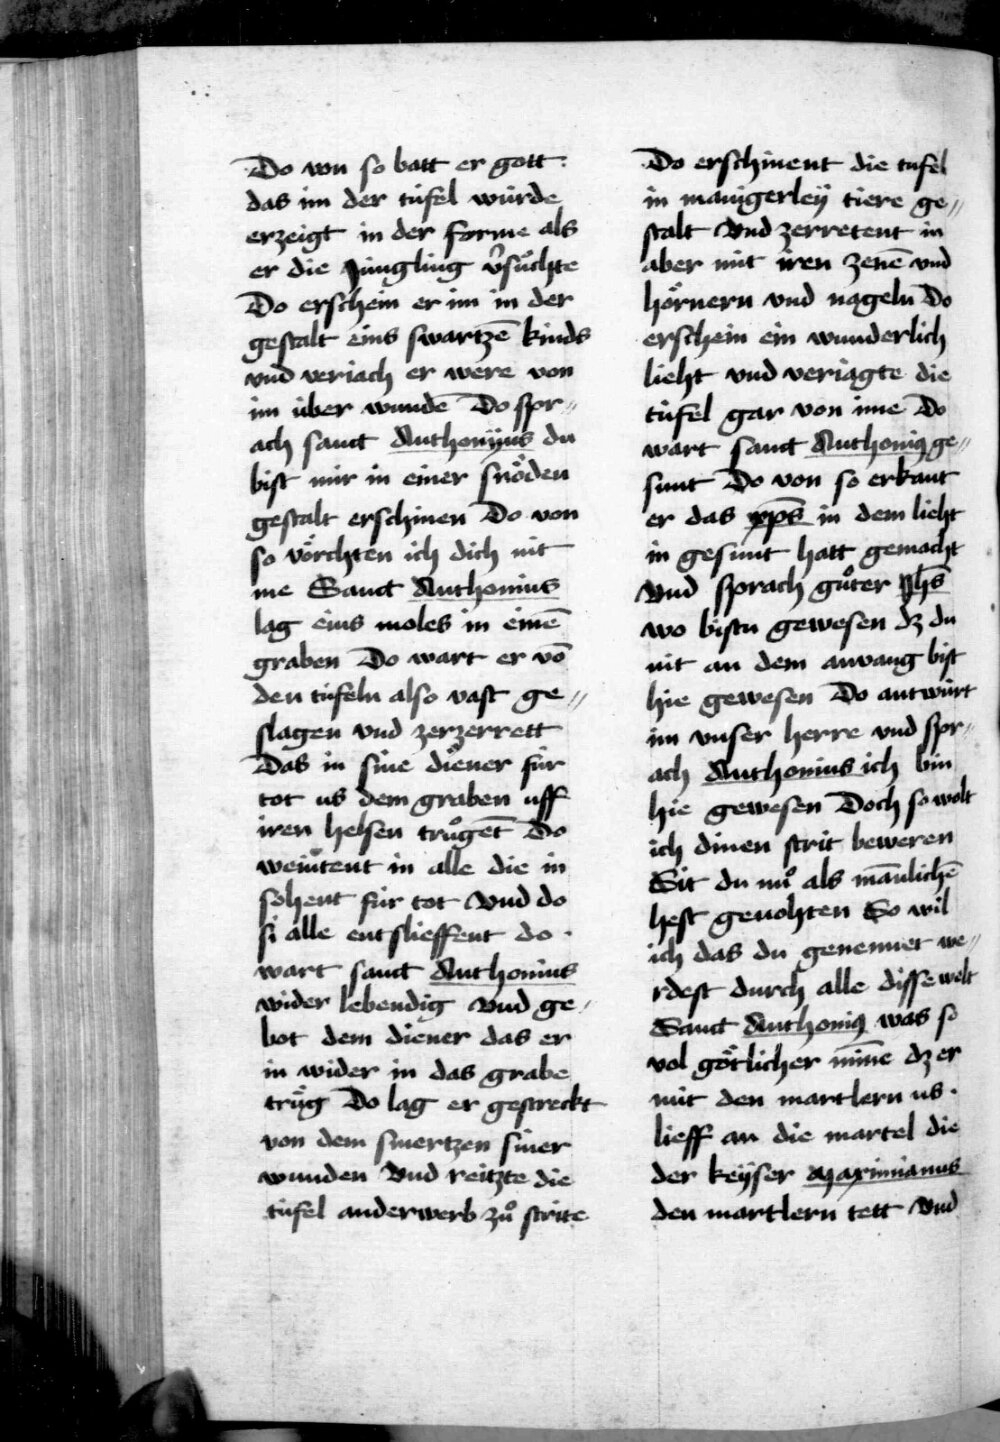 Do von so batt er gott
das im der túfel wúrde
erzeigt in der forme als
er die Júngling v̉sůchte
Do erschein er im in der
gestalt eins swartzē kinds
vnd veriach er were von
im úber wundē Do spr〃
ach sanct Anthonÿus du
bist mir in einer snöden
gestalt erschinen Do von
so vörchten ich dich nit
me Sanct Anthonius
lag eins moles in einē
graben Do wart er vō
den túfeln also vast ge〃
slagen vnd zerzerrett
Das in sine diener fúr
tot us dem graben uff
iren helsen trůgēt Do
weinͦtent in alle die in
sohent fúr tot Vnd do
si alle entslieffent do ·
wart sanct Anthonius
wider lebendig Vnd ge〃
bot dem diener das er
in wider in das grabe
trůg Do lag er gestreckt
von dem smertzen siner
wunden Vnd reitzte die
túfel anderwerb zů strite
Do erschinent die tufel
in manigerleÿ tiere ge〃
stalt Vnd zerretent in
aber mit iren zenē vnd
hörnern vnd nageln Do
erschein ein wunderlich
lieht vnd veriagte die
túfel gar von ime Do
wart sanct Anthoniꝯ ge〃
sunt Do von so erkant
er das xp̄s in dem lieht
in gesunt hatt gemacht
Vnd sprach gůter Jh̄s
wo bistu gewesen dz du
nit an dem anvang bist
hie gewesen Do antwúrt
im vnser herre vnd spr〃
ach Anthonius ich bin
hie gewesen Doch so wolt
ich dinen strit beweren
Sit du nů als mānlichē
hest gevohten So wil
ich das du genennet we〃
rdest durch alle disse welt
Sanct Anthoniꝯ was so
vol götlicher mīne dz er
mit den martlern us ·
lieff an die martel die
der keÿser Maximianus
den martlern tett Vnd